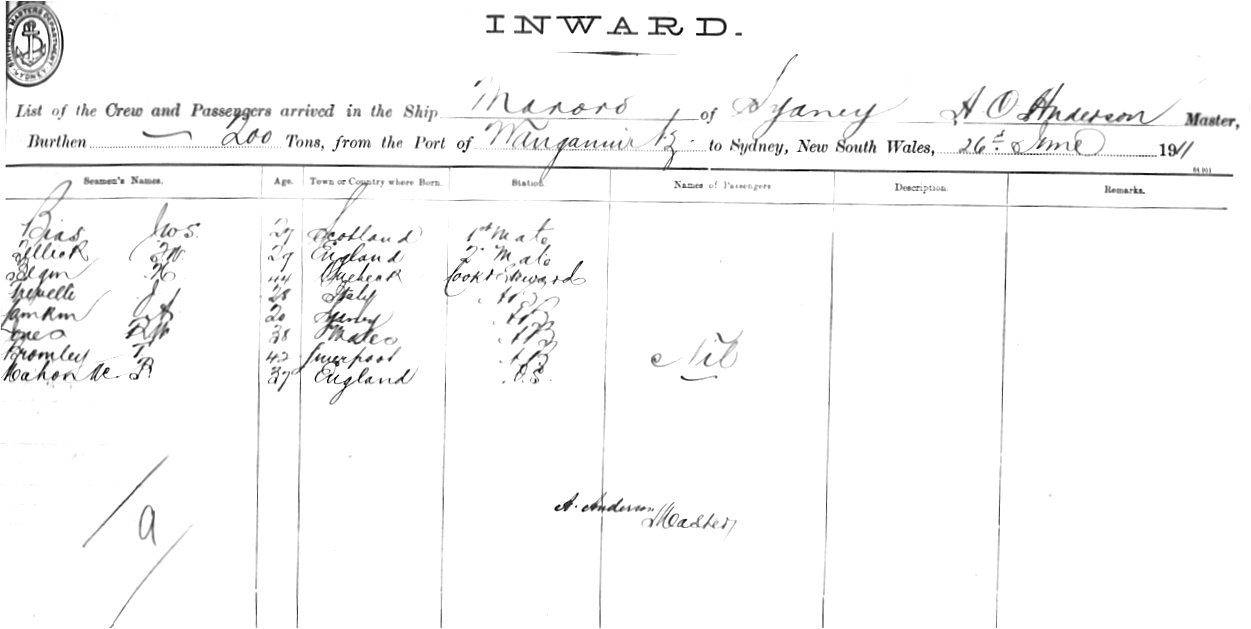 SHIPPING MASTERS DEPARTMENT SYDNEY
INWARD.
List of the Crew and Passengers arrived in the Ship Manoro of Sydney A O Anderson Master,
Burthen 200 Tons, from the Port of to Sydney, New South Wales, 26th June 1911
Seamen's Names. Age. Town or Country where Born. Station. Names of Passengers Description. Remarks.
Bias Jno S. 27 Scotland 1st Mate
27 England 2nd Mate
44 Cook & Steward
28 Italy AB
20 Sydney AB
Jones RW 38 Wales AB
Bromley T 42 Liverpool AB
Mahon Mc P. 37 England O.S.
Nil
A. Anderson Master
a